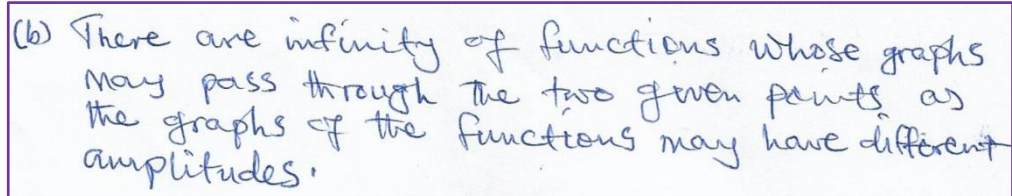 (b) There are infinity of functions whose graphs
may pass through the two given points as
the graphs of the functions may have different
amplitudes.